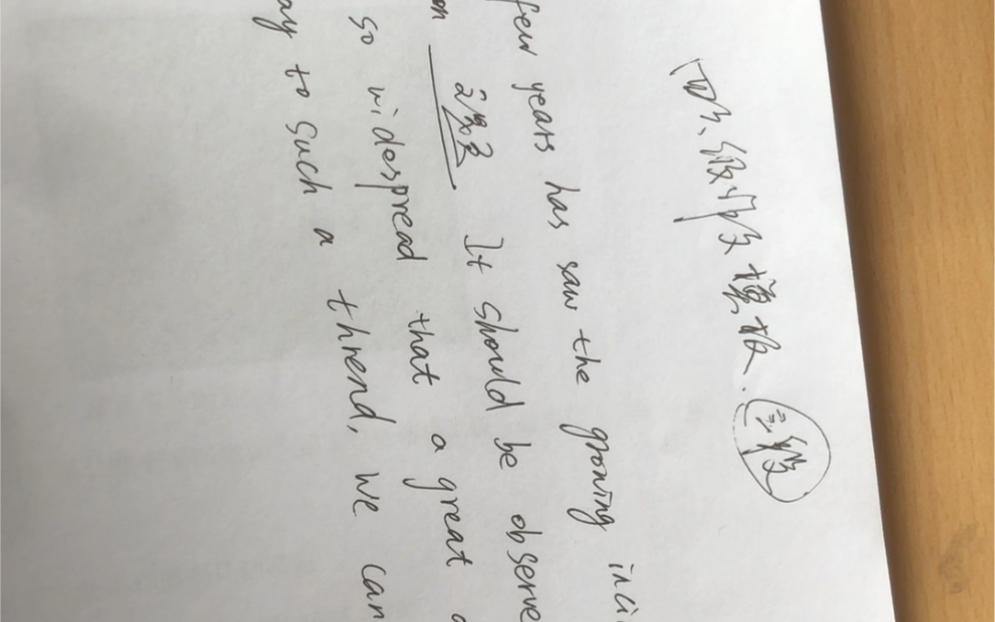 四、级作文模板. 三段
few years has saw the growing inci
on 主题 It should be observe
so widespread that a great
ay to such a thrend, we can